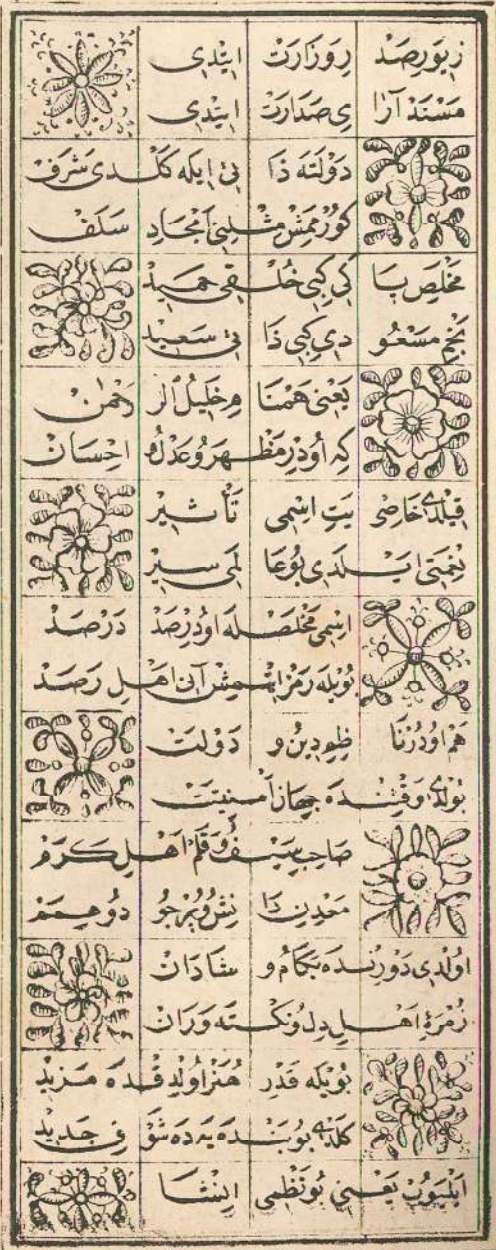 زيور صدر وزارت ايتدى
مسند آراى صدارت ايتدى
دولته ذاتى ايله كلدى شرف
كورممش مثلنى امجاد سلف
مخلص پاكى كبى خلقى حميد
نجم مسعودى كبى ذاتى سعيد
يعنى همنام خليل الرحمن
كه اودر مظهر و عدل و احسان
قيلدى خاصيت اسمى تأثير
نعمتى ايلدى بو عالمى سير
اسمى مخلصله اودر صدر در صد
بويله رمز ايتمش آن اهل رصد
هم اودر ناظم دين و دولت
بولدى وقتنده جهان امنيت
صاحب سيف و قلم اهل كرم
معدن دانش و پرجود و همم
اولدى دورنده بكام و شادان
زمرۀ اهل دل و نكته وران
بويله قدر هنر اولدقده مزيد
كلدى بو بنده يه ده شوق جديد
ايليوب يعنى بو نظمى انشا